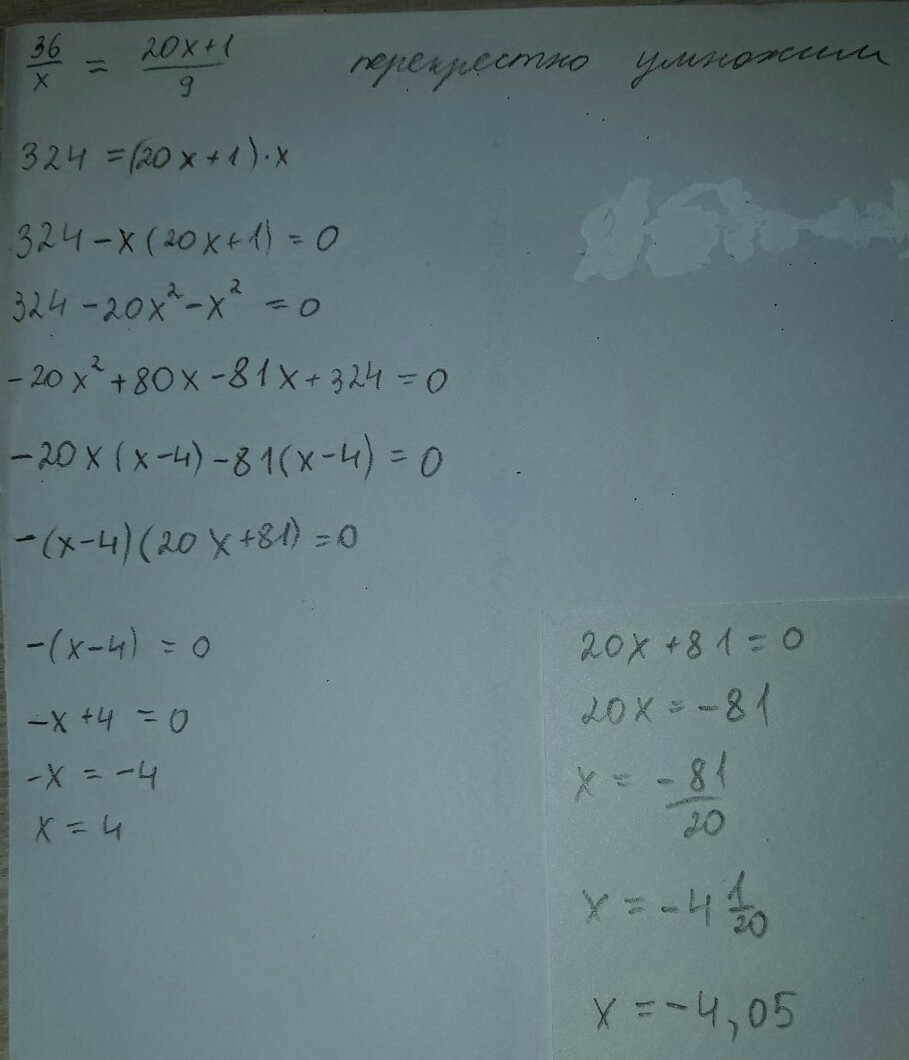 36/x = 20x+1/9 перекрестно умножим
324 = (20x+1)·x
324 - x(20x+1) = 0
324 - 20x² - x² = 0
-20x² + 80x - 81x + 324 = 0
-20x(x-4) - 81(x-4) = 0
-(x-4)(20x+81) = 0
-(x-4) = 0
-x + 4 = 0
-x = -4
x = 4
20x + 81 = 0
20x = -81
x = -81/20
x = -4 1/20
x = -4,05